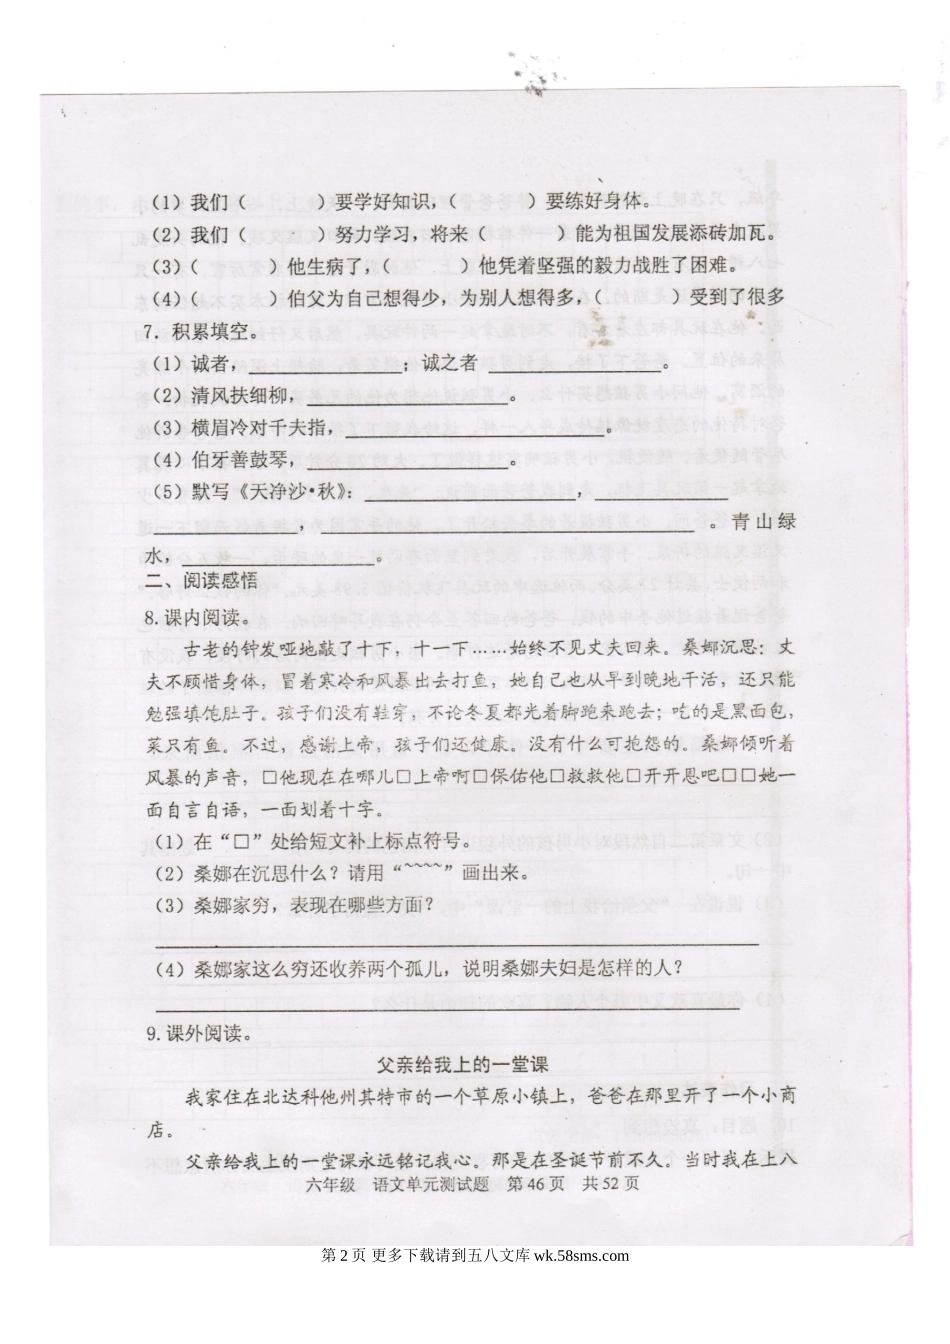 (1) 我们（　　　）要学好知识，（　　　）要练好身体。
(2) 我们（　　　）努力学习，将来（　　　）能为祖国发展添砖加瓦。
(3)（　　　）他生病了，（　　　）他凭着坚强的毅力战胜了困难。
(4)（　　　）伯父为自己想得少，为别人想得多，（　　　）受到了很多
7. 积累填空。
(1) 诚者，____________；诚之者____________。
(2) 清风扶细柳，________________。
(3) 横眉冷对千夫指，____________________。
(4) 伯牙善鼓琴，________________。
(5) 默写《天净沙·秋》：________________，____________
____________，______________________________。青山绿
水，________________。
二、阅读感悟
8. 课内阅读。
古老的钟发哑地敲了十下，十一下……始终不见丈夫回来。桑娜沉思：丈
夫不顾惜身体，冒着寒冷和风暴出去打鱼，她自己也从早到晚地干活，还只能
勉强填饱肚子。孩子们没有鞋穿，不论冬夏都光着脚跑来跑去；吃的是黑面包，
菜只有鱼。不过，感谢上帝，孩子们还健康。没有什么可抱怨的。桑娜倾听着
风暴的声音，□他现在在哪儿□上帝啊□保佑他□救救他□开开恩吧□□她一
面自言自语，一面划着十字。
(1) 在“□”处给短文补上标点符号。
(2) 桑娜在沉思什么？请用“~~~~”画出来。
(3) 桑娜家穷，表现在哪些方面？
(4) 桑娜家这么穷还收养两个孤儿，说明桑娜夫妇是怎样的人？
9. 课外阅读。
父亲给我上的一堂课
我家住在北达科他州其特市的一个草原小镇上，爸爸在那里开了一个小商
店。
父亲给我上的一堂课永远铭记我心。那是在圣诞节前不久。当时我在上八
六年级　语文单元测试题　第 46 页　共 52 页
第 2 页 更多下载请到五八文库 wk.58sms.com